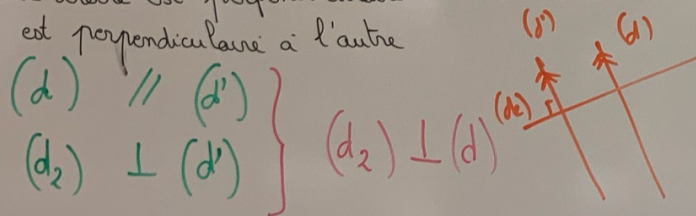 est perpendiculaire à l'autre
(d) // (d')
(d₂) ⊥ (d')
(d₂) ⊥ (d)
(d')
(d)
(d₂)